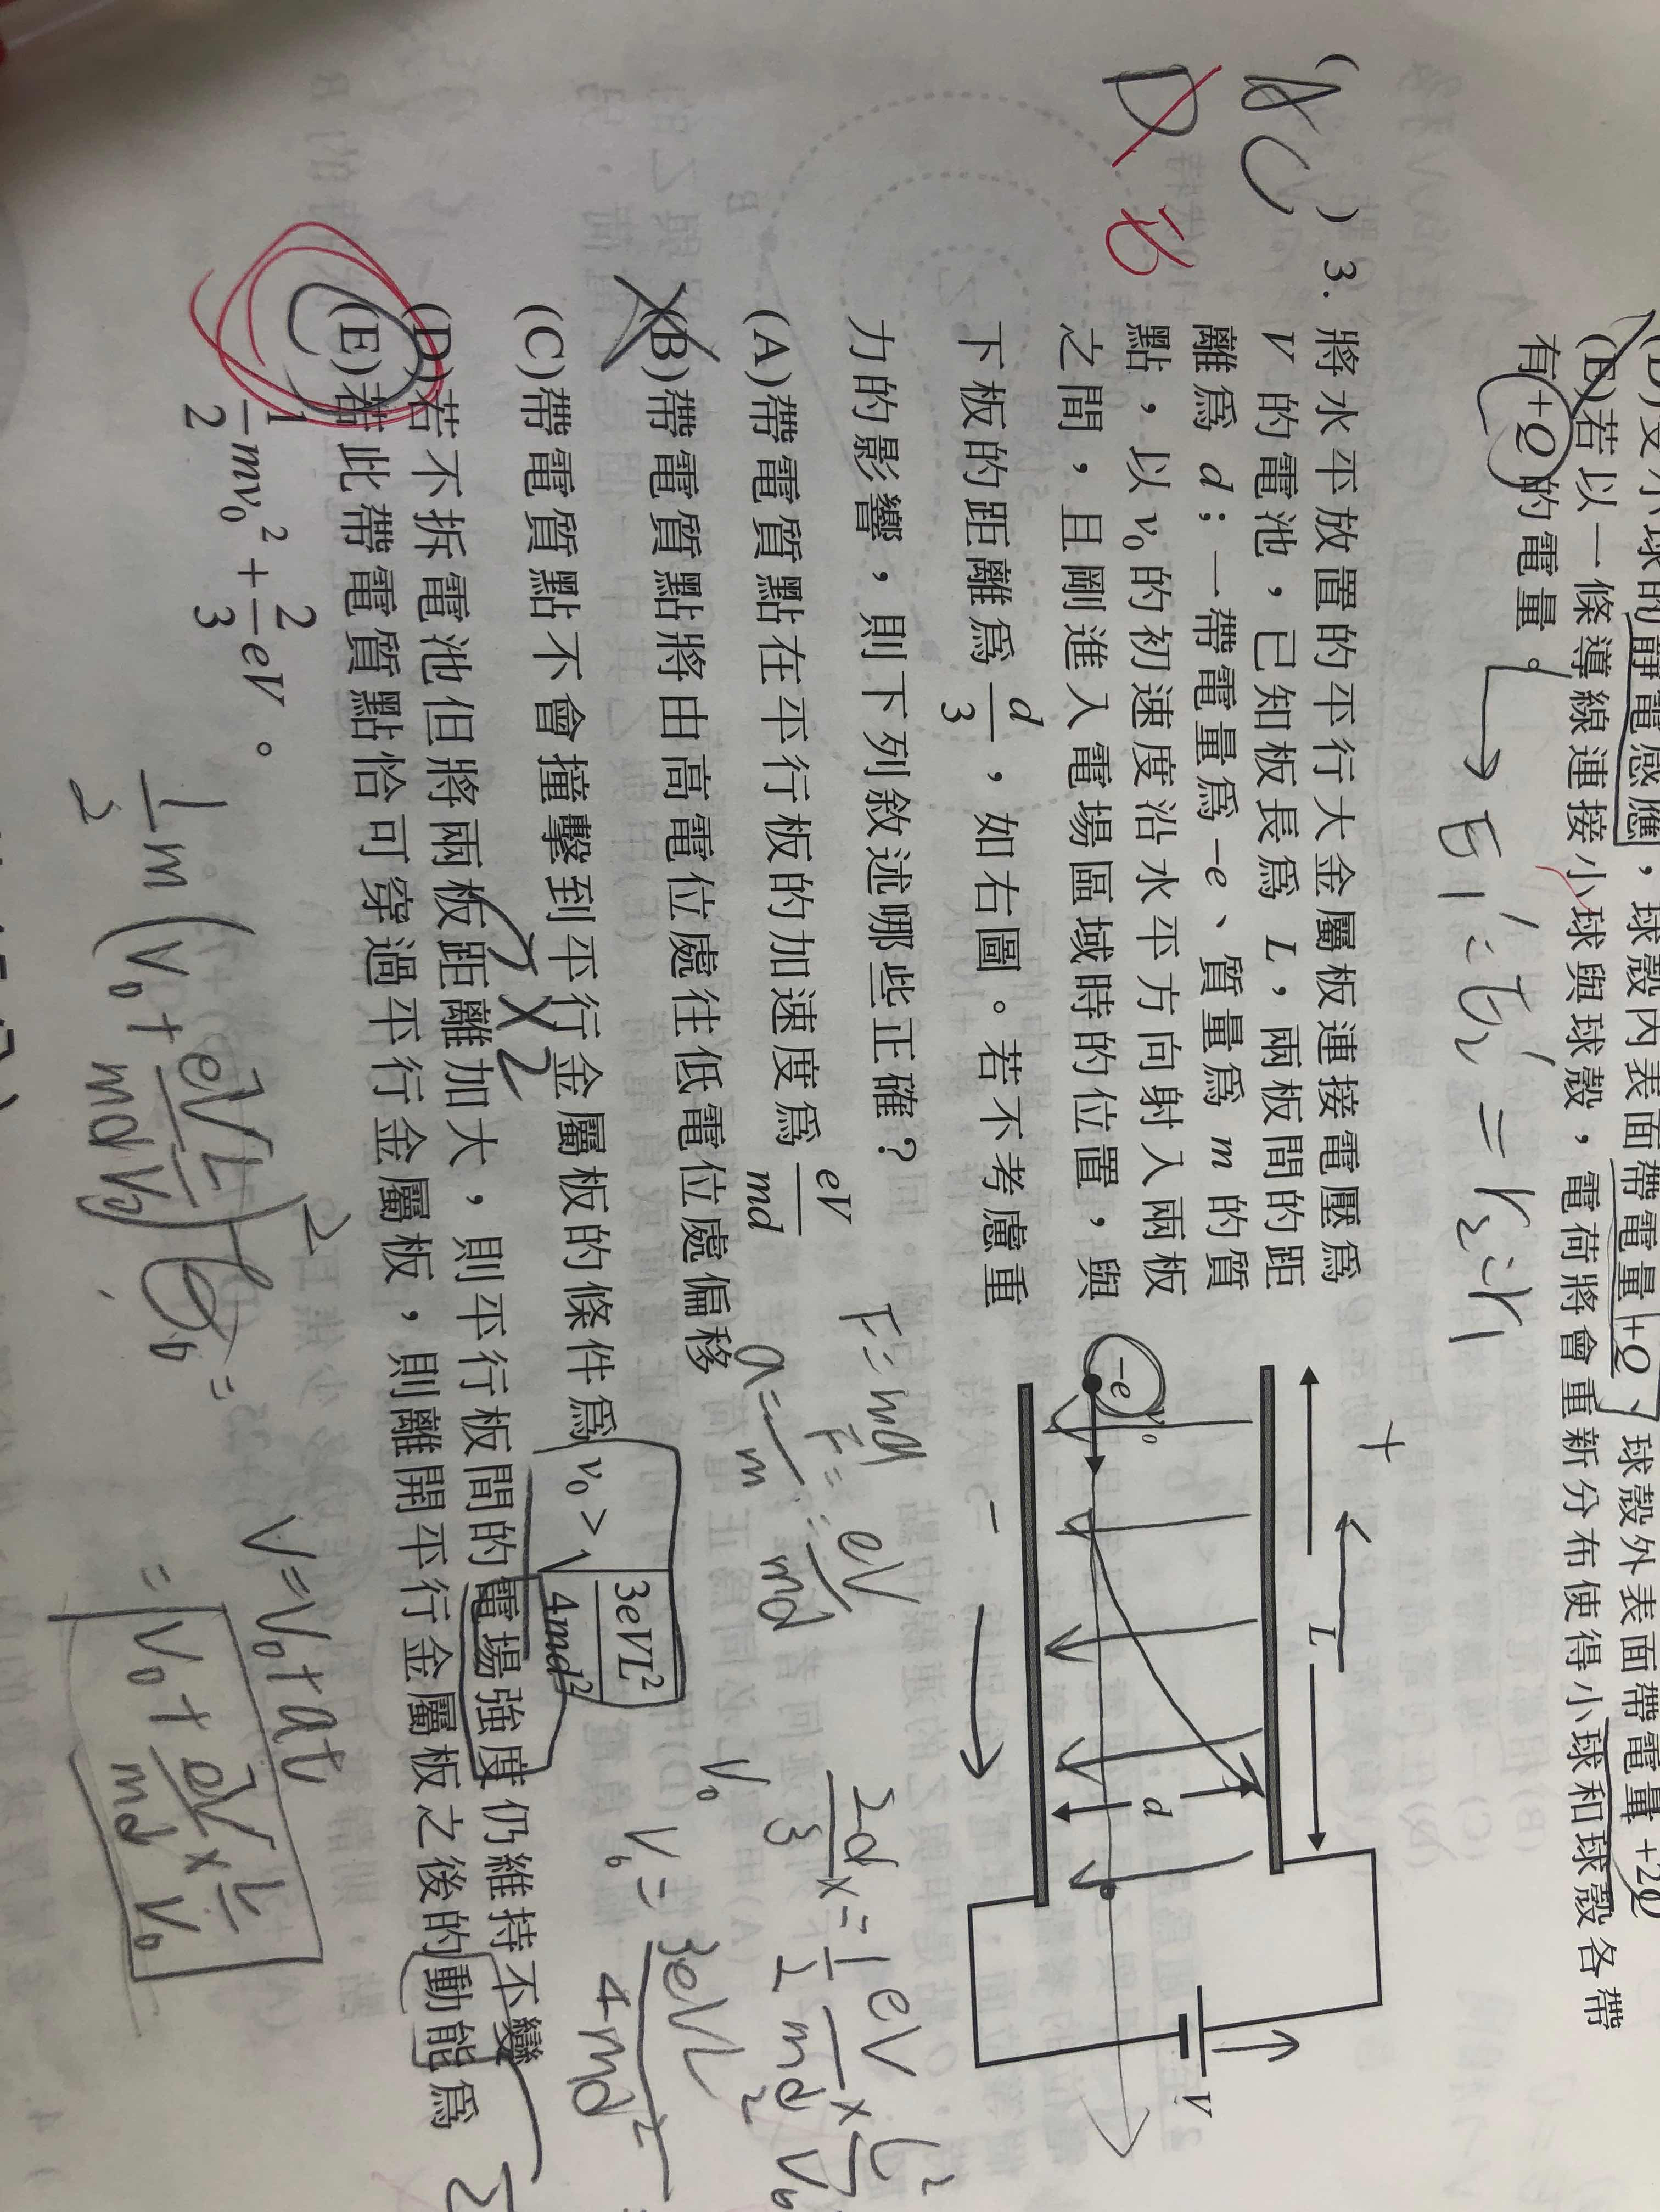 有+Q的電量。
(E)若以一條導線連接小球與球殼，電荷將會重新分布使得小球和球殼各帶
靜電感應，球殼內表面帶電量+Q、球殼外表面帶電量+2Q
E₁':E₂' = r₂:r₁
(AC) 3. 將水平放置的平行大金屬板連接電壓為
V 的電池，已知板長為 L，兩板間的距
離為 d；一帶電量為-e、質量為 m 的質
點，以 v₀ 的初速度沿水平方向射入兩板
之間，且剛進入電場區域時的位置，與
下板的距離為 d/3，如右圖。若不考慮重
力的影響，則下列敘述哪些正確？
D
E
(A)帶電質點在平行板的加速度為 eV/md
(B)帶電質點將由高電位處往低電位處偏移
(C)帶電質點不會撞擊到平行金屬板的條件為 v₀ > √(3eVL²/4md²)
(D)若不拆電池但將兩板距離加大，則平行板間的電場強度仍維持不變
(E)若此帶電質點恰可穿過平行金屬板，則離開平行金屬板之後的動能為
1/2 mv₀² + 2/3 eV。
+
L
-e
v₀
d
V
-
F=ma
a= F/m = eV/md
×2
2d/3 = 1/2 eV/md × L²/V₀
V₀
V₀ = 3eVL²/4md²
V=V₀+at
= V₀+ eV/md × L/V₀
1/2 m (V₀+ eVL/mdV₀)²